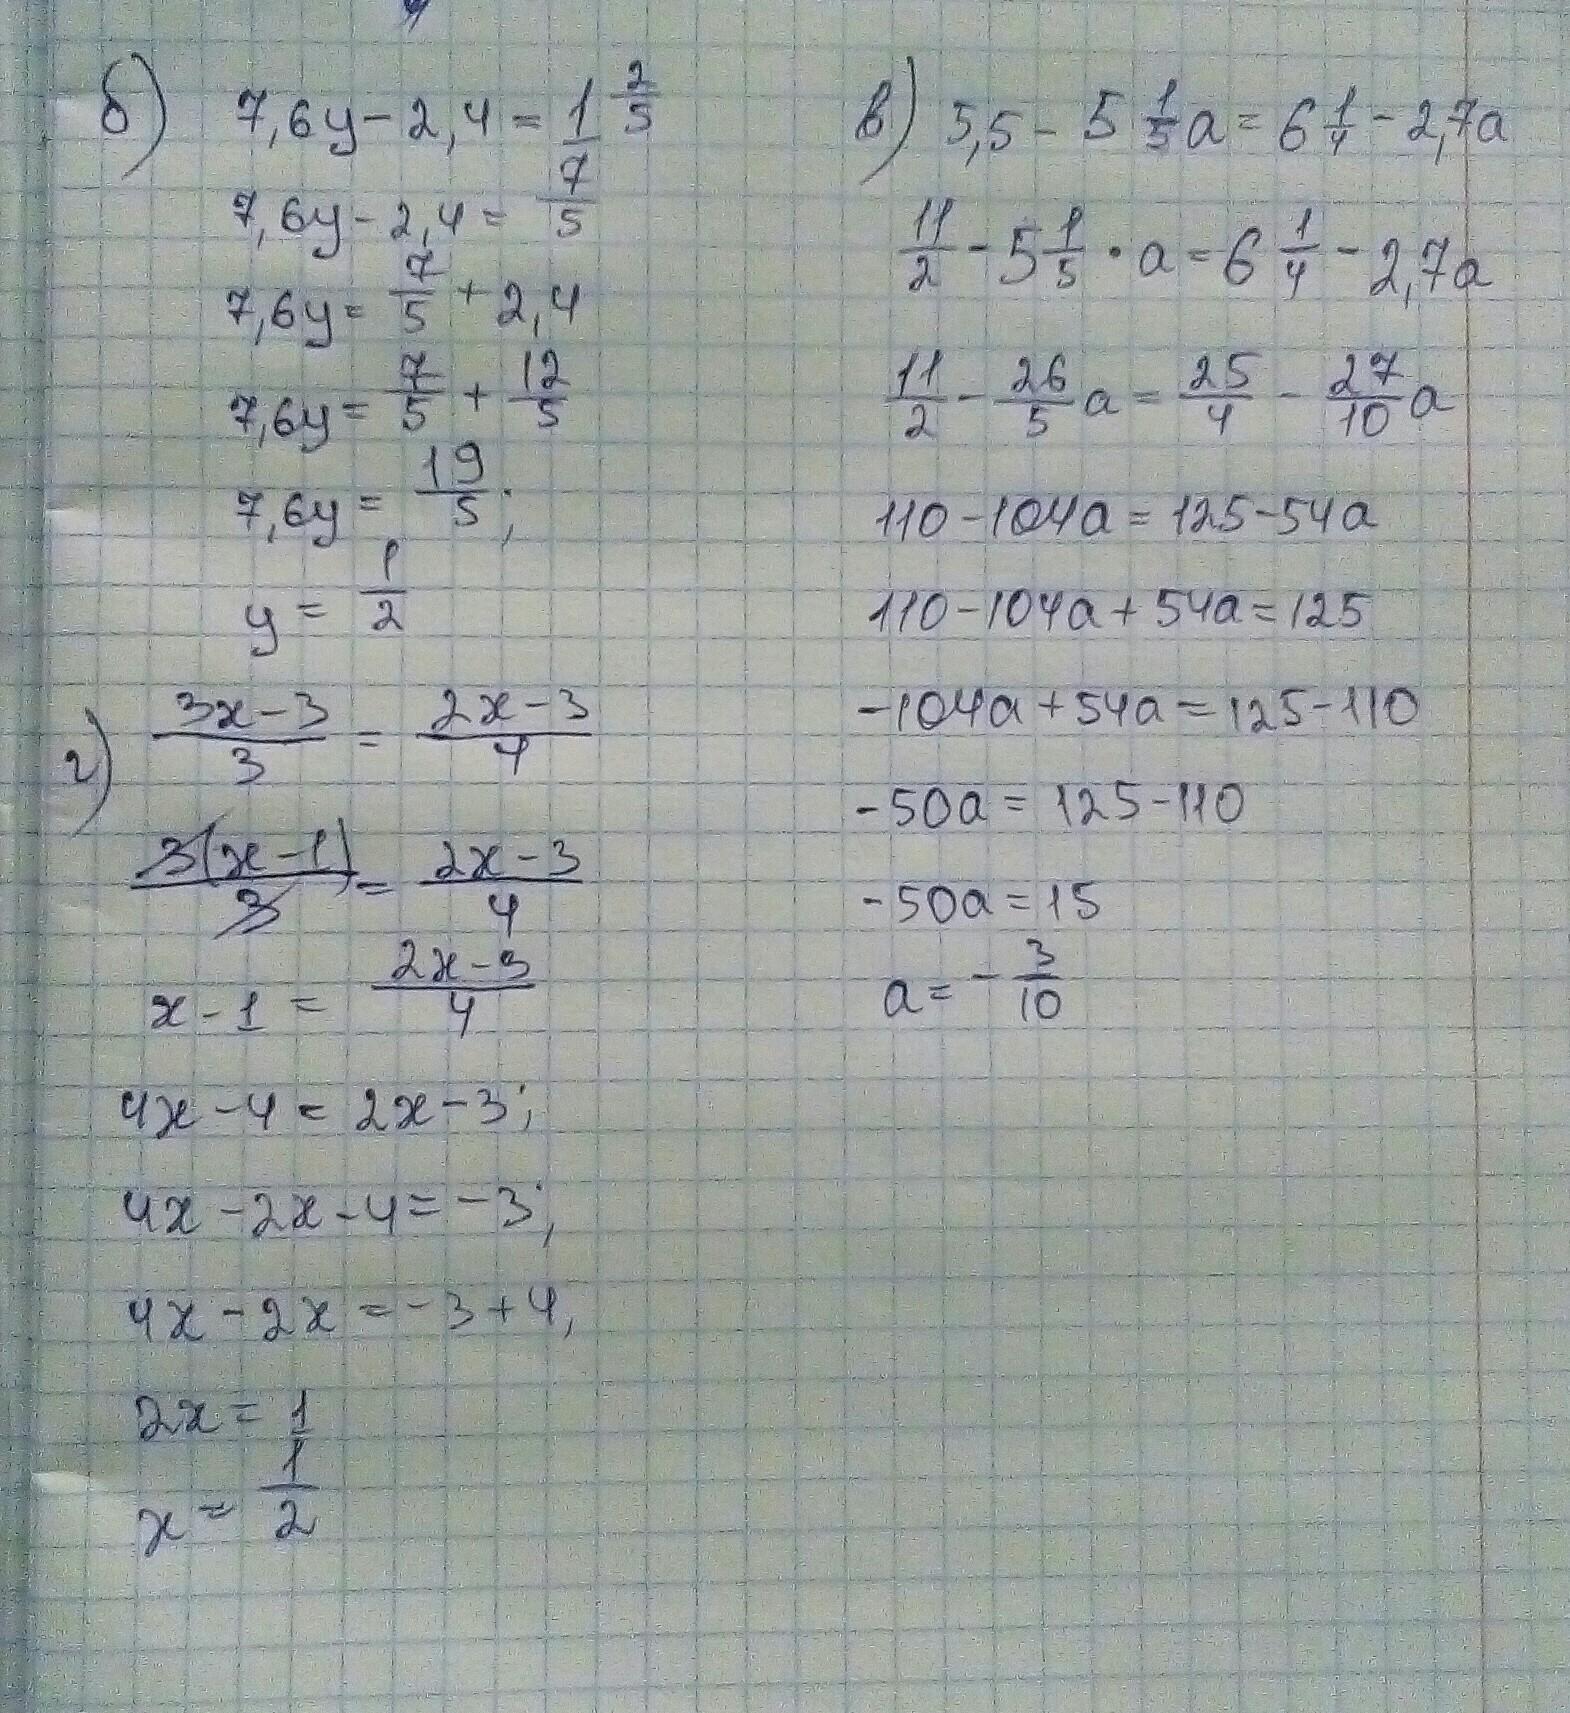 б) 7,6y - 2,4 = 1 2/5
7,6y - 2,4 = 7/5
7,6y = 7/5 + 2,4
7,6y = 7/5 + 12/5
7,6y = 19/5;
y = 1/2
г) (3x - 3)/3 = (2x - 3)/4
3(x - 1)/3 = (2x - 3)/4
x - 1 = (2x - 3)/4
4x - 4 = 2x - 3;
4x - 2x - 4 = -3;
4x - 2x = -3 + 4,
2x = 1
x = 1/2
в) 5,5 - 5 1/5 a = 6 1/4 - 2,7a
11/2 - 5 1/5 · a = 6 1/4 - 2,7a
11/2 - 26/5 a = 25/4 - 27/10 a
110 - 104a = 125 - 54a
110 - 104a + 54a = 125
-104a + 54a = 125 - 110
-50a = 125 - 110
-50a = 15
a = - 3/10